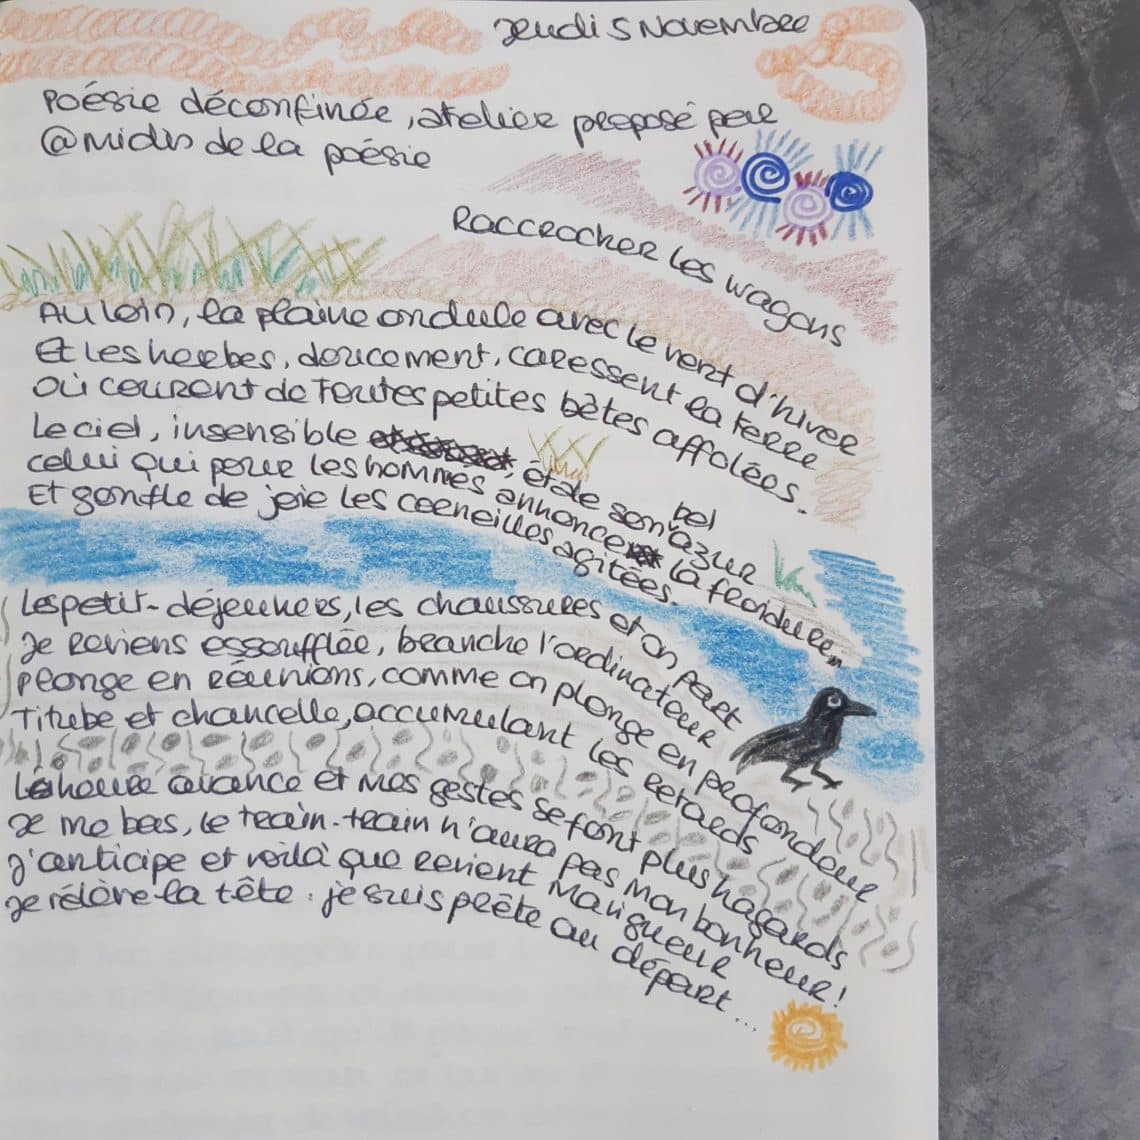 Jeudi 5 Novembre
Poésie déconfinée, atelier proposé par
@midis de la poésie
Raccrocher les wagons
Au loin, la plaine ondule avec le vent d'hiver
Et les herbes, doucement, caressent la terre
Où courent de toutes petites bêtes affolées.
Le ciel, insensible, étale son bel azur
celui qui pour les hommes annonce la froidure
Et gonfle de joie les corneilles agitées.
Les petit-déjeuners, les chaussures et on part
Je reviens essoufflée, branche l'ordinateur
Plonge en réunions, comme on plonge en profondeur
Titube et chancelle, accumulant les retards
L'heure avance et mes gestes se font plus hagards
Je me bas, le train-train n'aura pas mon bonheur!
J'anticipe et voilà que revient ma vigueur
Je rélève la tête : je suis prête au départ...